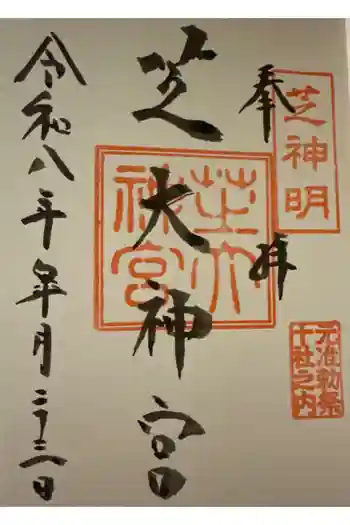 芝神明
奉拝
元准勅祭
十社之内
芝大神宮
芝大
神宮
令和八年月二十三日